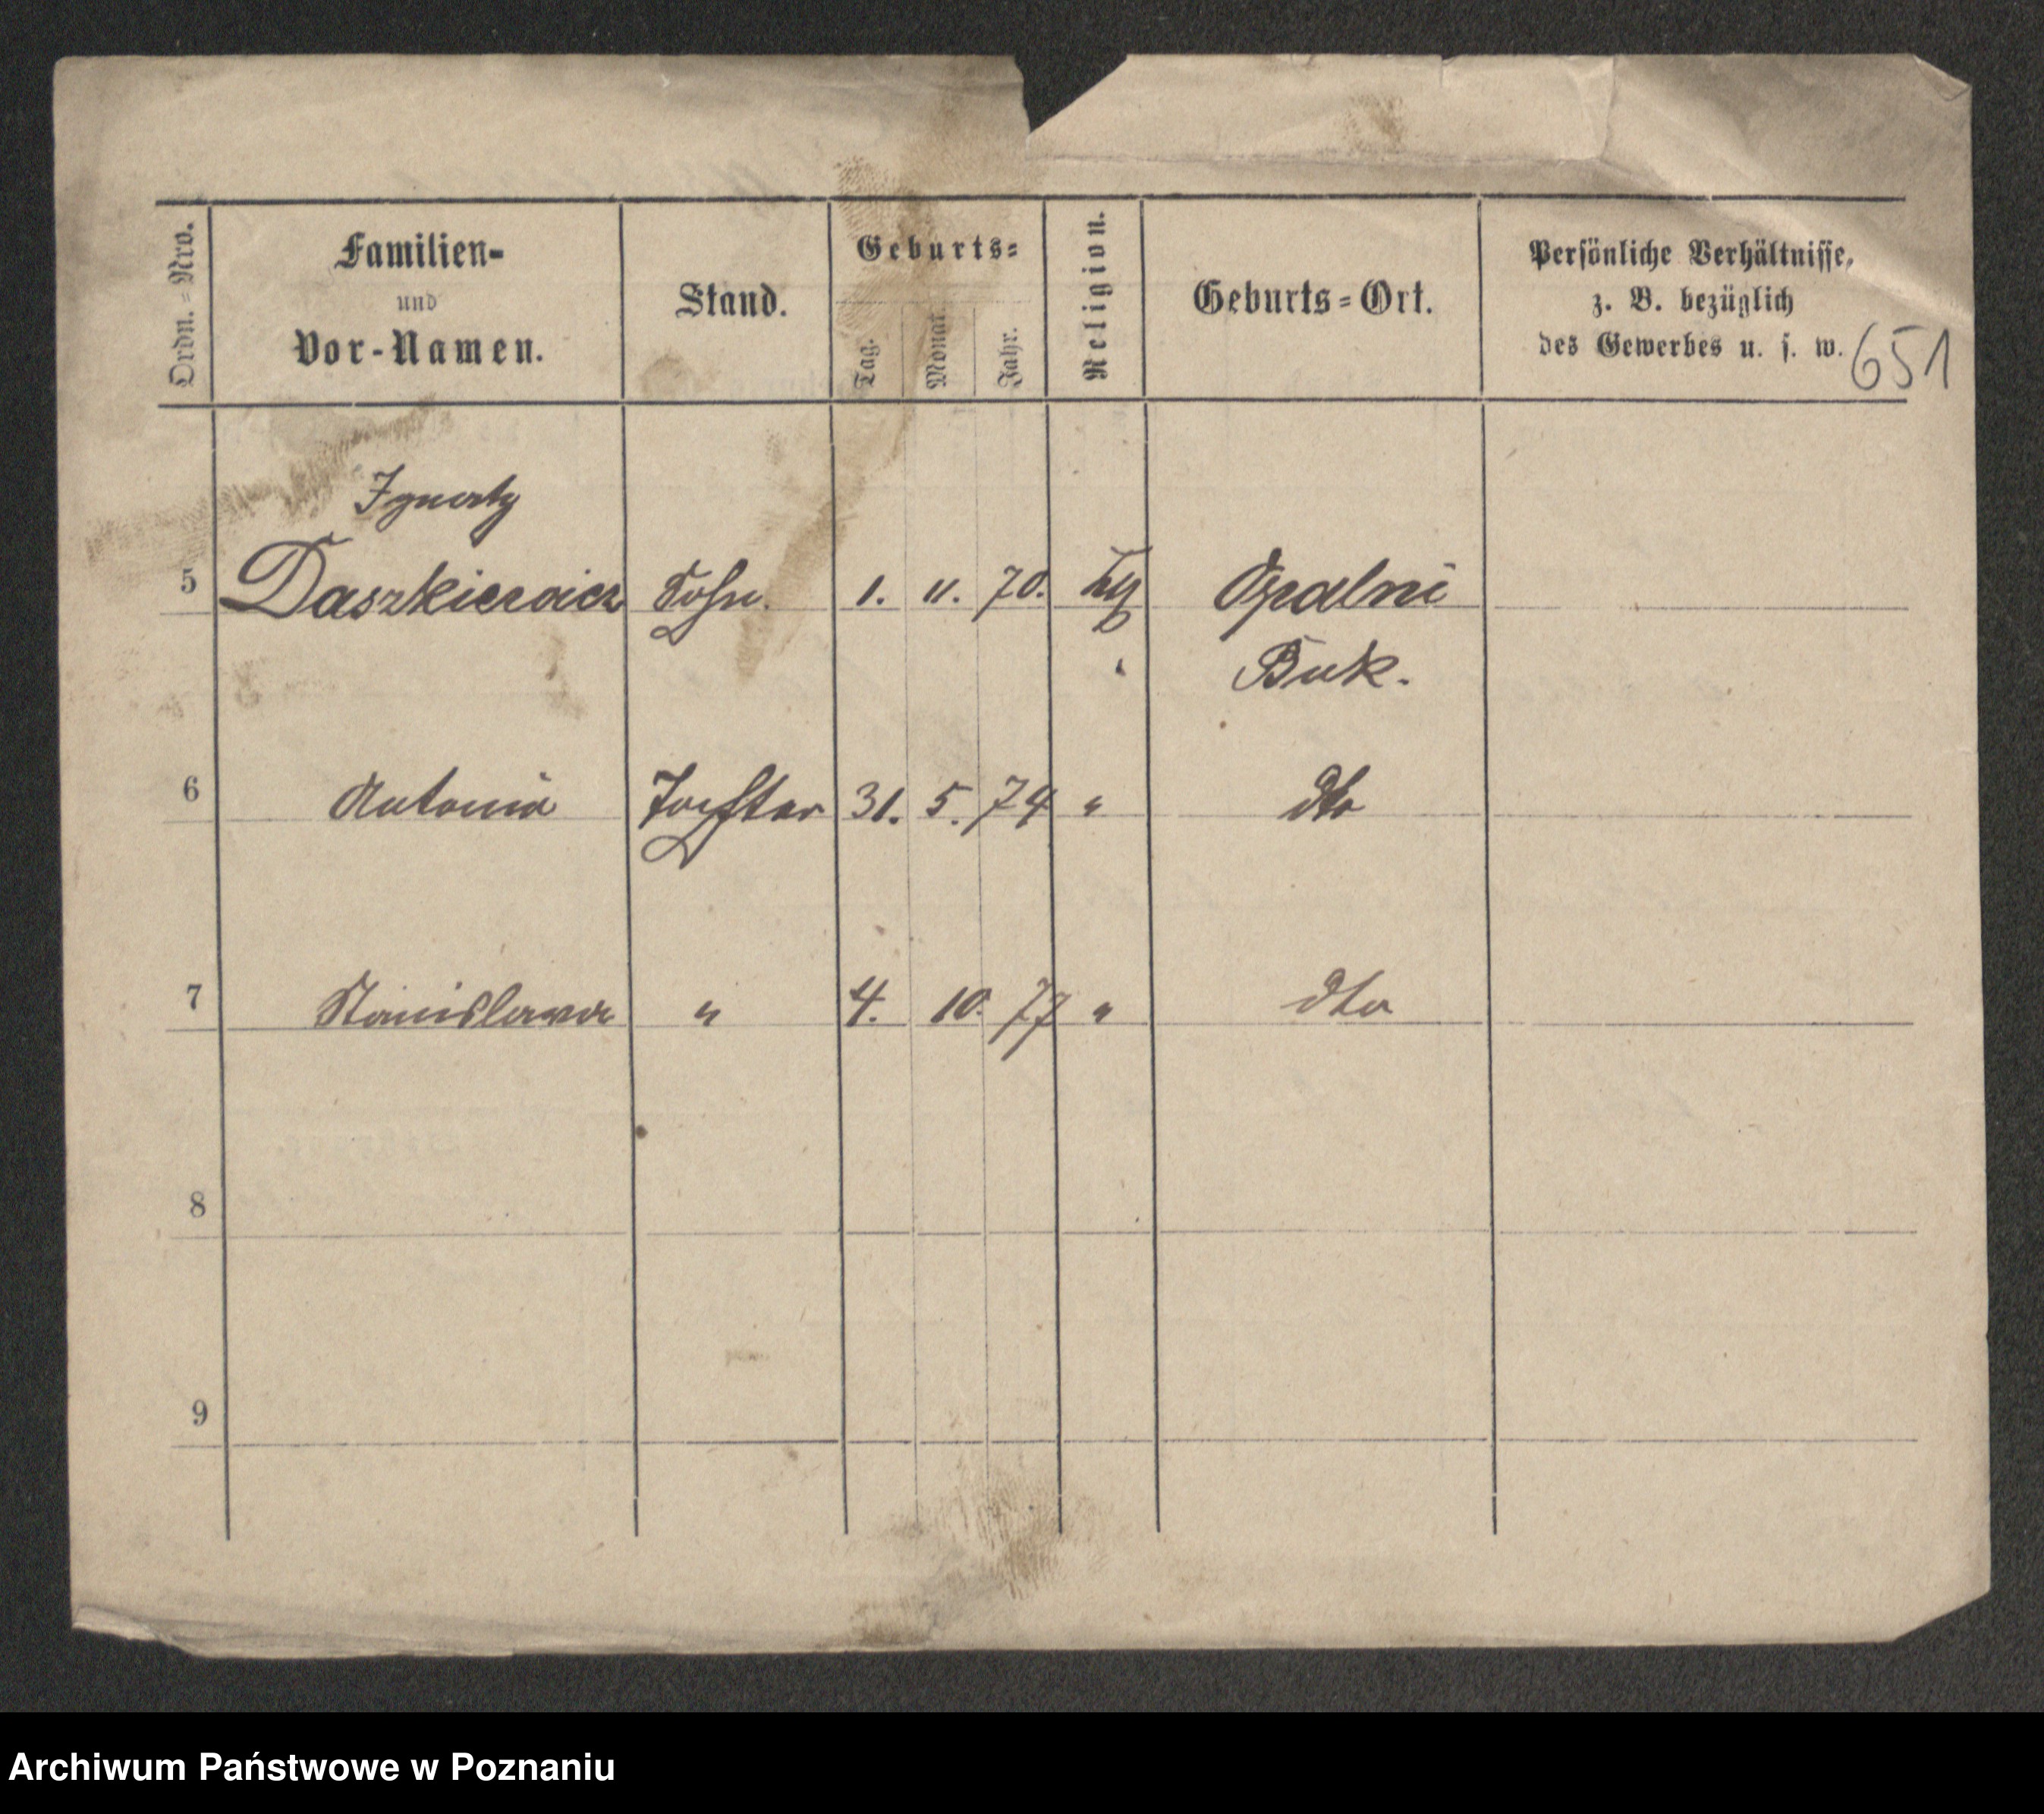 Ordn.=Nro.
Familien-
und
Vor-Namen.
Stand.
Geburts=
Tag.
Monat.
Jahr.
Religion.
Geburts=Ort.
Persönliche Verhältnisse,
z. B. bezüglich
des Gewerbes u. s. w.
651
Ignatz
5 Daszkiewicz Sohn. 1. 11. 70.
Buk.
6 Antonia Tochter 31. 5. 74 " dto
7 Stanislawa " 4. 10. 77 " dto
8
9
Archiwum Państwowe w Poznaniu